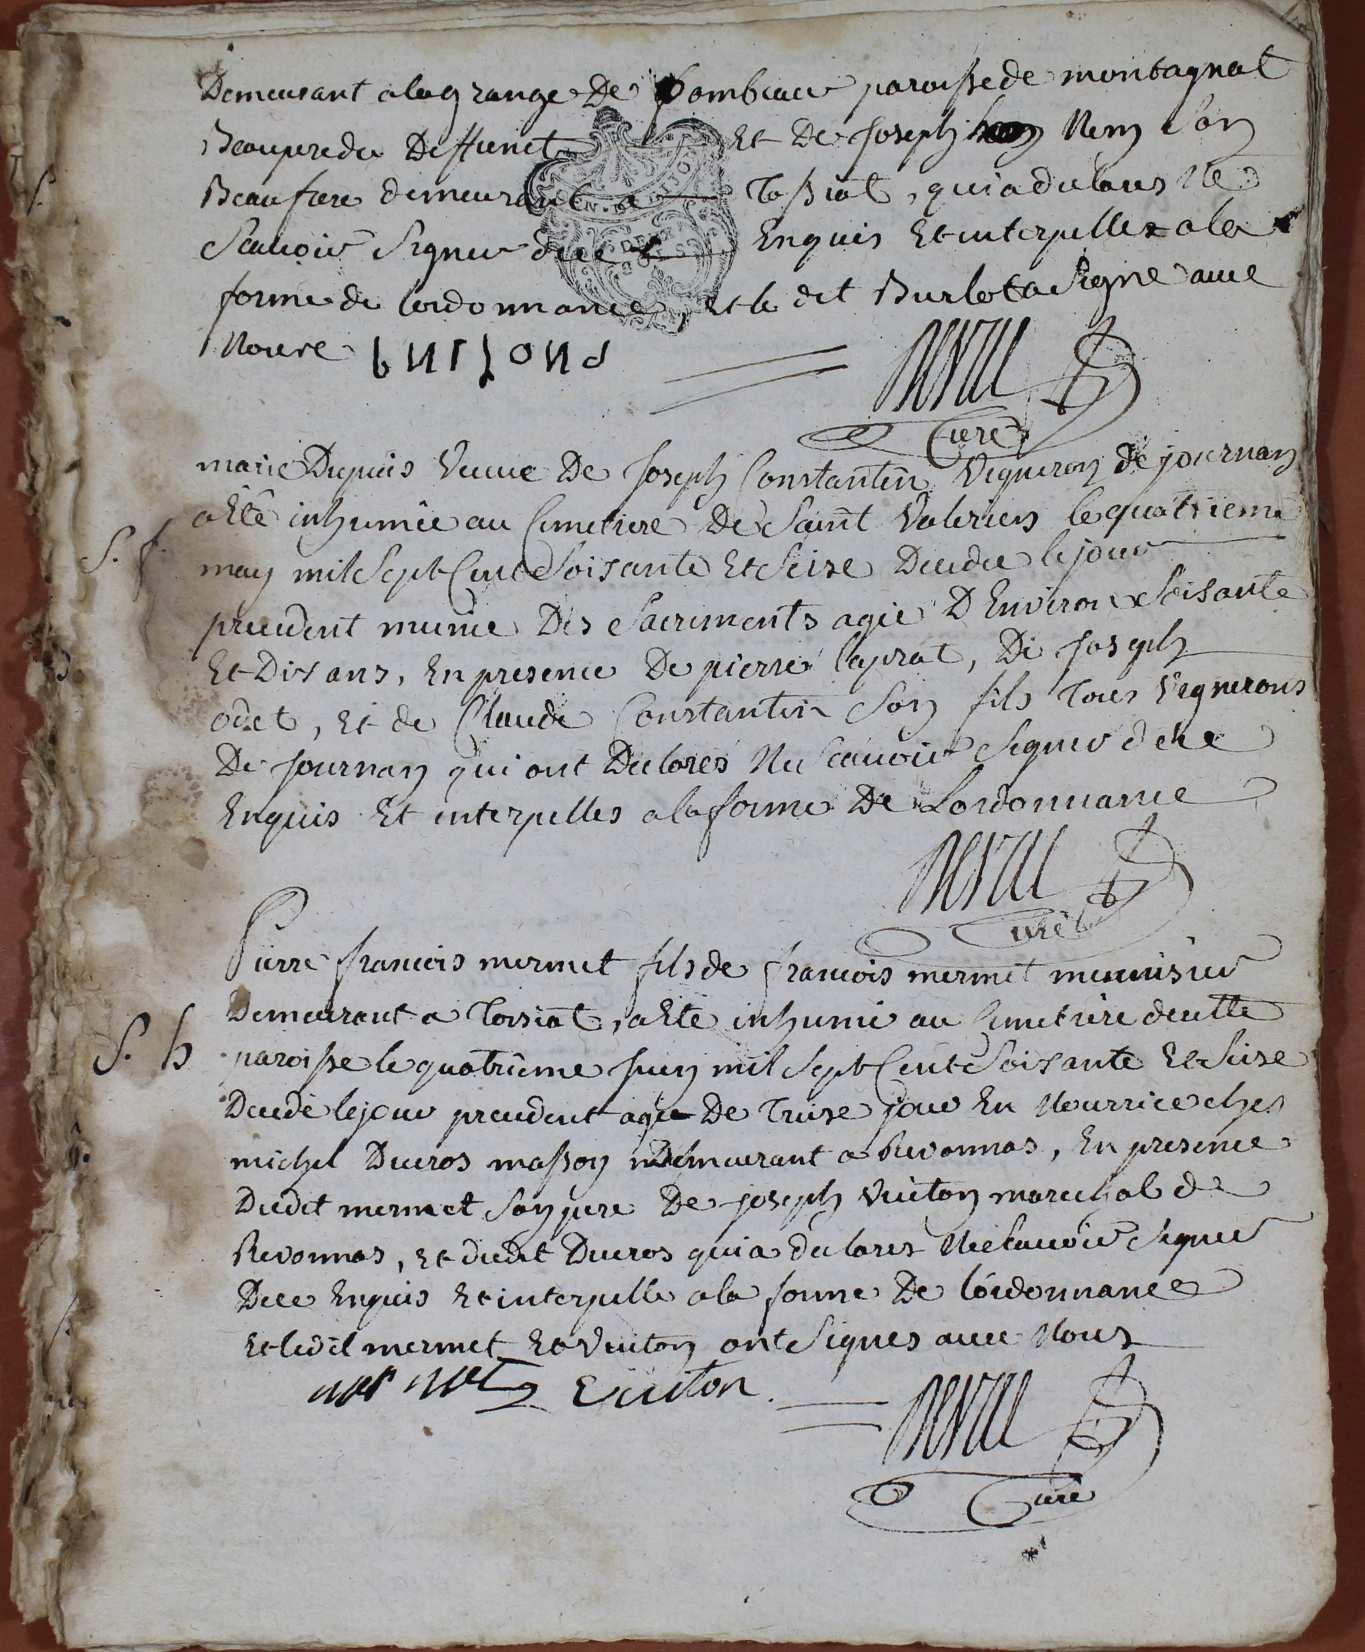 Demeurant a la grange De Pombeau paroisse de montagnat
Beaupere du Deffunct Et De Joseph Nem Son
Beaufrere demeurant a Tossiat, qui a declarés Ne
Scauoir Signer dece Enquis Et interpelles a la
forme de lordonnance, et le dit Burlot a Signé auec
Nous
neveu
Curé
marie Dupuis Veuue De Joseph Constantin Vigneron De journan
a Eté inhumée au Cimetiere De Saint Valerien le quatrieme
may mil Sept Cent Soisante Et Seise Decedee le jour
precedent munie Des Sacrements agée D Environ Soisante
Et Dix ans, En presence De pierre laprat, De Joseph
odet, Et de Claude Constantin Son fils Tous Vignerons
De Journan qui ont Declarés Ne Scauoir Signer dece
Enquis Et interpelles a la forme De Lordonnance
neveu
Curé
S. f.
Pierre francois mermet fils de francois mermet menuisier
Demeurant a Tossiat, a Eté inhumé au Cimetiere de cette
S. h
paroisse le quatrieme Juin mil Sept Cent Soisante Et Seise
Decedé le jour precedent agé De Treise jour En Nourrice ches
michel Ducros masson Demeurant a Revonnas, En presence
Dudit mermet Son pere De joseph Vuiton marechal de
Revonnas, Et dudit Ducros qui a declarés Ne Scauoir Signer
Dece Enquis Et interpellé a la forme De lordonnance
Et ledit mermet Et Vuiton ont Signes auec Nous
mermet Vuiton
neveu
Curé